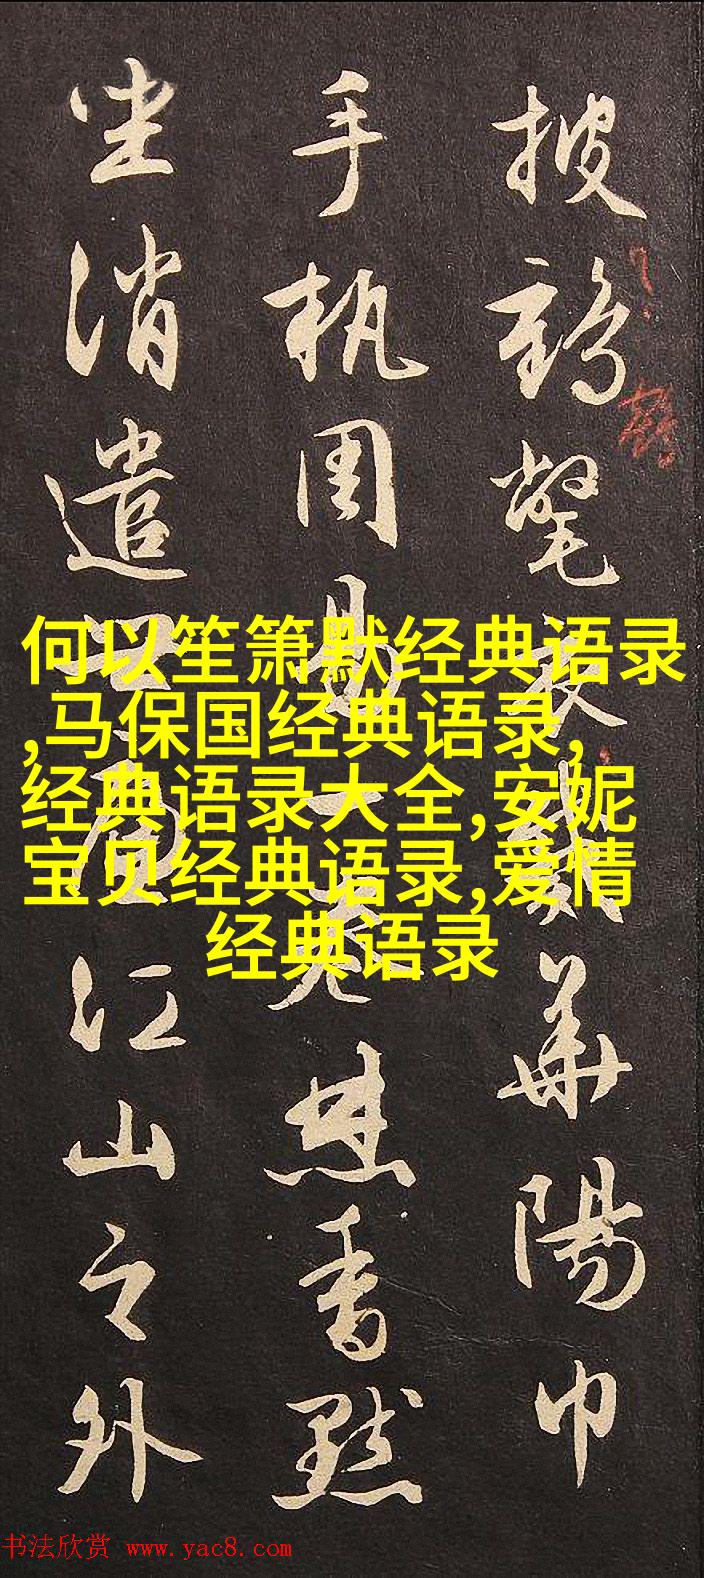 披鶴氅衣戴華陽巾
手執周易一卷焚香默
坐消遣世慮江山之外
何以笙箫默经典语录
,马保国经典语录,
经典语录大全,安妮
宝贝经典语录,爱情
经典语录
书法欣赏 www.yac8.com